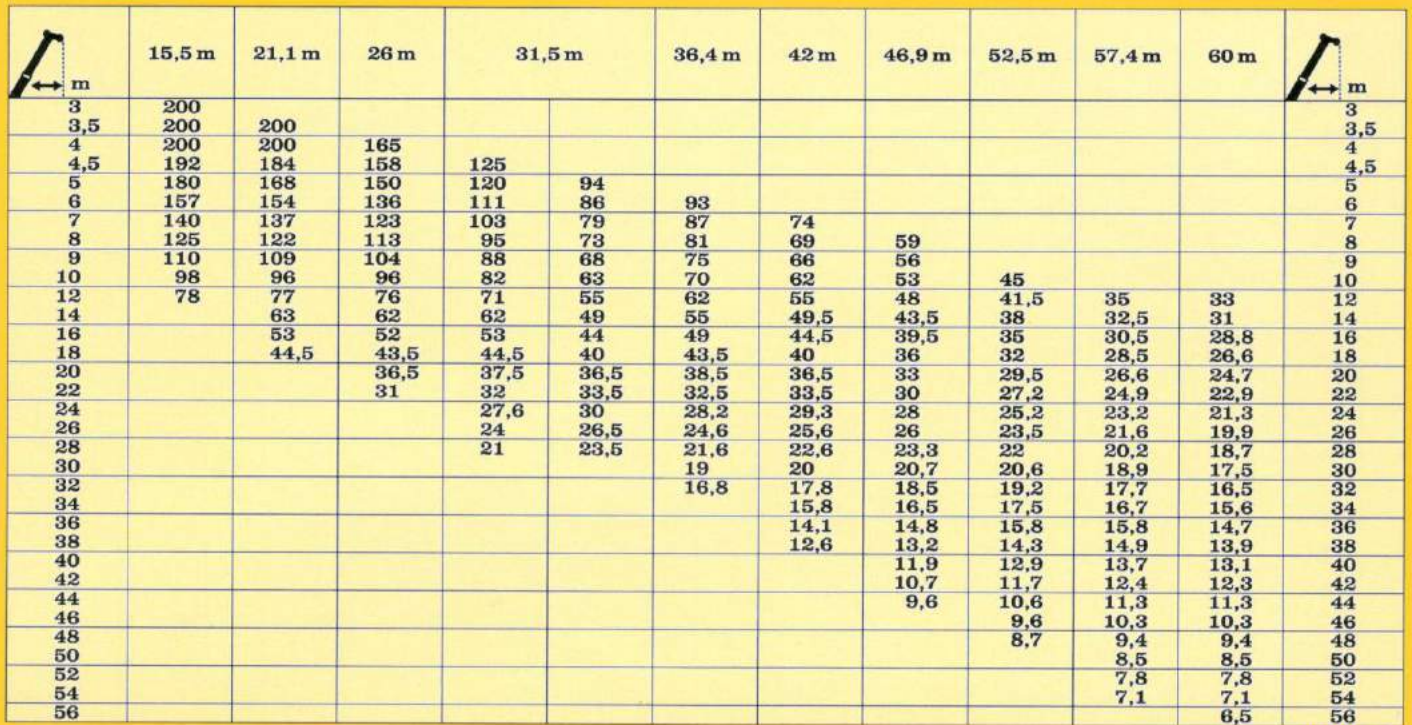 m 15,5 m 21,1 m 26 m 31,5 m 36,4 m 42 m 46,9 m 52,5 m 57,4 m 60 m m
3 200 3
3,5 200 200 3,5
4 200 200 165 4
4,5 192 184 158 125 4,5
5 180 168 150 120 94 5
6 157 154 136 111 86 93 6
7 140 137 123 103 79 87 74 7
8 125 122 113 95 73 81 69 59 8
9 110 109 104 88 68 75 66 56 9
10 98 96 96 82 63 70 62 53 45 10
12 78 77 76 71 55 62 55 48 41,5 35 33 12
14 63 62 62 49 55 49,5 43,5 38 32,5 31 14
16 53 52 53 44 49 44,5 39,5 35 30,5 28,8 16
18 44,5 43,5 44,5 40 43,5 40 36 32 28,5 26,6 18
20 36,5 37,5 36,5 38,5 36,5 33 29,5 26,6 24,7 20
22 31 32 33,5 32,5 33,5 30 27,2 24,9 22,9 22
24 27,6 30 28,2 29,3 28 25,2 23,2 21,3 24
26 24 26,5 24,6 25,6 26 23,5 21,6 19,9 26
28 21 23,5 21,6 22,6 23,3 22 20,2 18,7 28
30 19 20 20,7 20,6 18,9 17,5 30
32 16,8 17,8 18,5 19,2 17,7 16,5 32
34 15,8 16,5 17,5 16,7 15,6 34
36 14,1 14,8 15,8 15,8 14,7 36
38 12,6 13,2 14,3 14,9 13,9 38
40 11,9 12,9 13,7 13,1 40
42 10,7 11,7 12,4 12,3 42
44 9,6 10,6 11,3 11,3 44
46 9,6 10,3 10,3 46
48 8,7 9,4 9,4 48
50 8,5 8,5 50
52 7,8 7,8 52
54 7,1 7,1 54
56 6,5 56